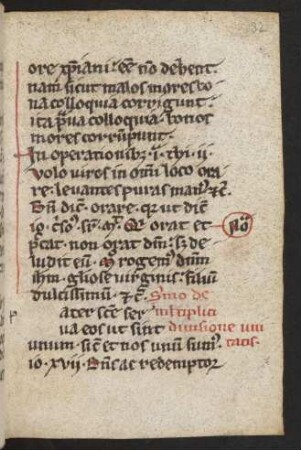 32
ore xpiani ee no debent.
nam sicut malos mores bo
na colloquia corrigunt.
ita praua colloquia bonos
mores corrupunt.
In operationib; i. thi. ii
volo viros in omi loco ora
re leuantes puras man9 &c.
Bn dic orare. qr ut dic
orat et
pctat. non orat dm. sz de
ludit eu. Rogem9 dnm
ihm. gliose virginis filiu
dulcissimu. &c. Smo de
ater sce ser multiplici
ua eos ut sint diuisione uni
unum. sic et nos unu sum9. tatis.
io. xvii. Dns ac redemptor